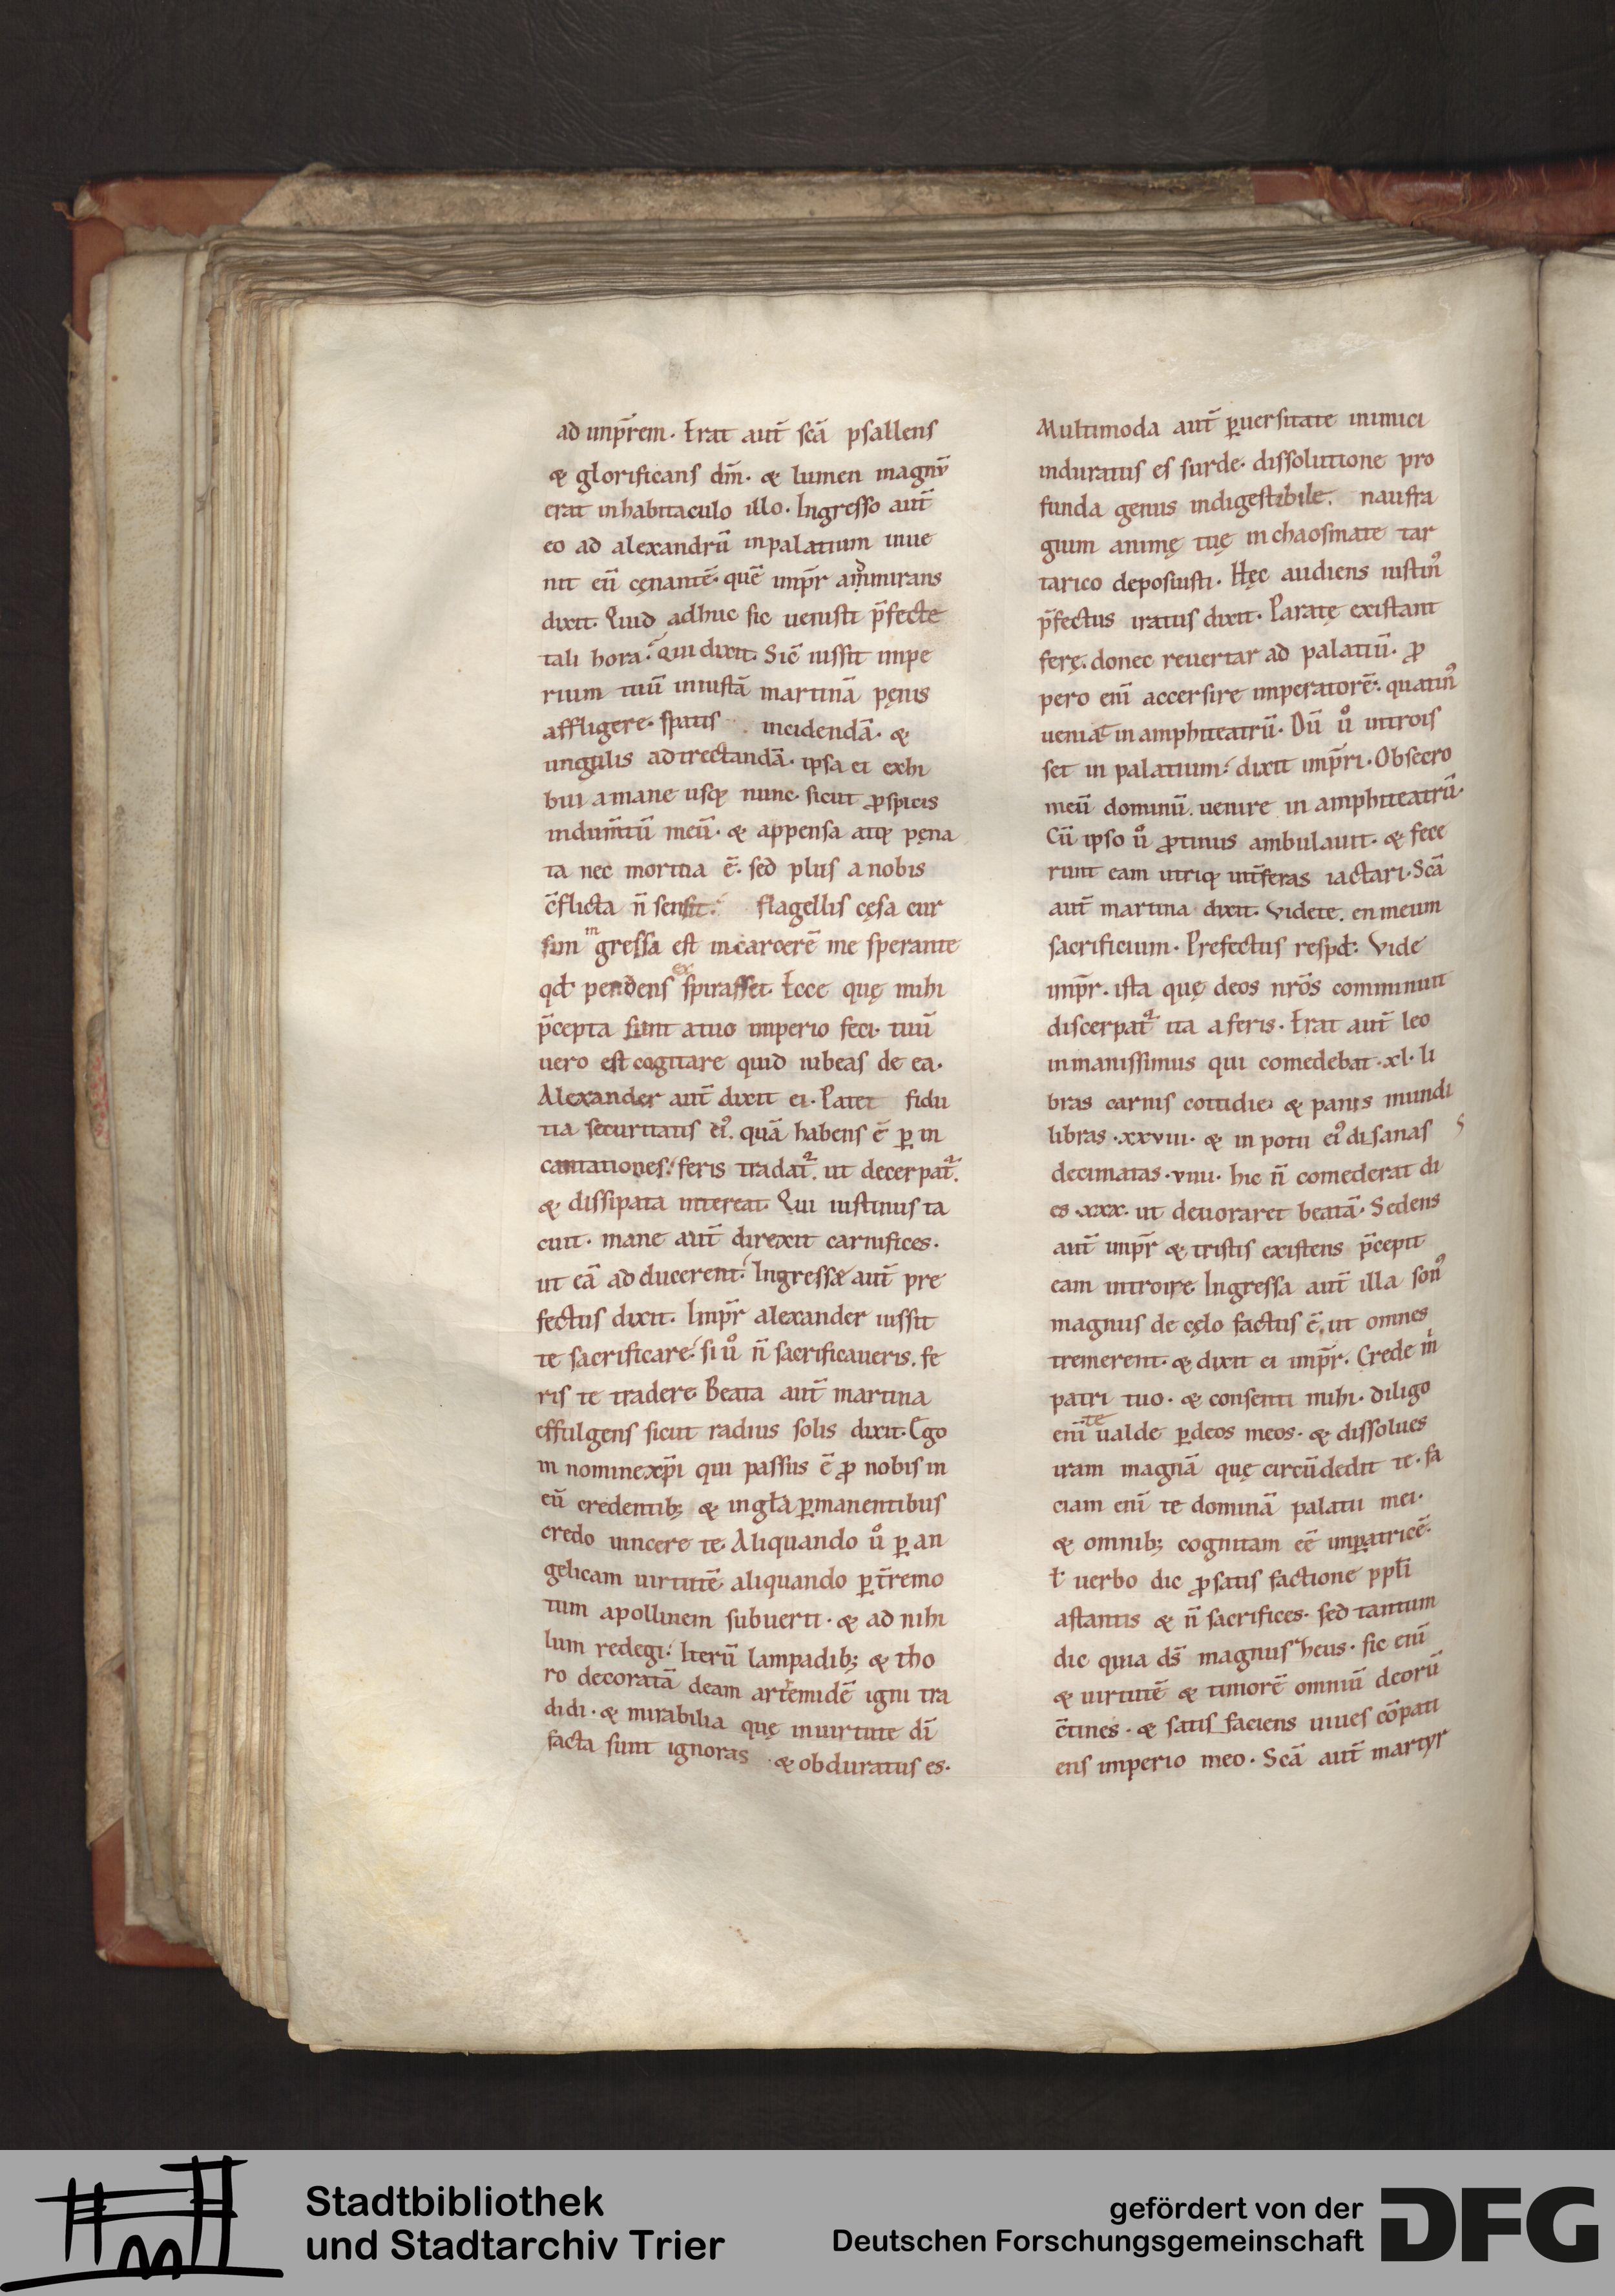 ad imp̄rem. Erat aut̄ sc̄a psallens
& glorificans dm̄. & lumen magnū
erat in habitaculo illo. Ingresso aut̄
eo ad alexandrū in palatium inue
nit eū cęnantē. quē imp̄r ammirans
dixit. Quid adhuc sic uenisti p̄fecte
tali hora? Qui dixit. Sic̄ iussit impe
rium tuū iniustā martinā pęnis
affligere. spatis incidendā. &
ungulis adtrectandā. ipsa ei exhi
bui amane usq; nunc. sicut ꝓspicis
indum̄tū meū. & appensa atq; pęna
ta nec mortua ē. sed plus a nobis
c̄flicta n̄ sensit. flagellis cęsa cur
sim ingressa est in carcerē me sperante
qd̄ pendens exspirasset. Ecce quę mihi
p̄cepta sunt atuo imperio feci. tuū
uero est cogitare quid iubeas de ea.
Alexander aut̄ dixit ei. Patet fidu
tia securitatis ei᾽. quā habens ē ꝑ in
cantationes. feris tradat᷑. ut decerpat᷑.
& dissipata intereat. Qui iustinus ta
cuit. mane aut̄ direxit carnifices.
ut eā adducerent. Ingressæ aut̄ pre
fectus dixit. Imp̄r alexander iussit
te sacrificare. si uͦ n̄ sacrificaueris. fe
ris te tradere. Beata aut̄ martina
effulgens sicut radius solis dixit. Ego
in nomine xp̄i qui passus ē ꝓ nobis in
eū credentib; & in gl̄a ꝑmanentibus
credo uincere te. Aliquando uͦ ꝑ an
gelicam uirtutē aliquando ꝑ t̄remo
tum apollinem subuerti. & ad nihi
lum redegi. Iterū lampadib; & tho
ro decoratā deam artemidē igni tra
didi. & mirabilia quę inuirtute dī
facta sunt ignoras & obduratus es.
Multimoda aut̄ ꝑuersitate inimici
induratus es surde. dissolutione pro
funda genus indigestibile. naufra
gium animę tuę in chaosmate tar
tarico deposuisti. Hęc audiens iustin᾽
p̄fectus iratus dixit. Parate existant
ferę. donec reuertar ad palatiū. ꝓ
pero enī accersire imperatorē. quatin᾽
ueniat in amphiteatrū. Dū uͦ introis
set in palatium. dixit imp̄ri. Obsecro
meū dominū. uenire in amphiteatrū.
Cū ipso uͦ ꝓtinus ambulauit. & fece
runt eam utriq; int̄ feras iactari. Scā
aut̄ martina dixit. Videte. en meum
sacrificium. Prefectus respd̄. Vide
imp̄r. ista quę deos nr̄os comminuit
discerpat᷑ ita a feris. Erat aut̄ leo
inmanissimus qui comedebat .xl. li
bras carnis cottidie. & panis mundi
libras .xxviii. & in potu ei᾽ disanas
decimatas .viiii. hic n̄ comederat di
es .xxx. ut deuoraret beatā. Sedens
aut̄ imp̄r & tristis existens p̄cepit
eam introire. Ingressa aut̄ illa son᾽
magnus de cęlo factus ē. ut omnes
tremerent. & dixit ei imp̄r. Crede m̄
patri tuo. & consenti mihi. diligo
enī te ualde ꝑdeos meos. & dissolues
iram magnā quę circūdedit te. fa
ciam enī te dominā palatii mei.
& omnib; cognitam eē imꝑatricē.
ł uerbo dic ꝓ satisfactione ppl̄i
astantis & n̄ sacrifices. sed tantum
dic quia ds̄ magnus heus. sic enī
& uirtutē & timorē omniū deorū
c̄tines. & satis faciens uiues cōpati
ens imperio meo. Scā aut̄ martyr
Stadtbibliothek
und Stadtarchiv Trier
gefördert von der
Deutschen Forschungsgemeinschaft
DFG